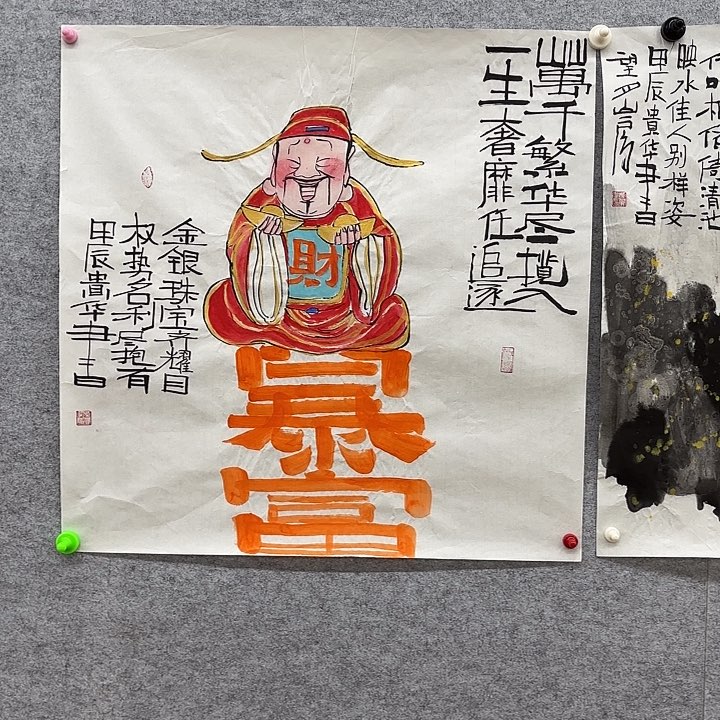 清池
映水佳人别样姿
甲辰貴华
萬千繁华尽揽入
一生奢靡任追逐
財
暴
富
金银珠宝齐耀目
权势名利尽抱有
甲辰貴华